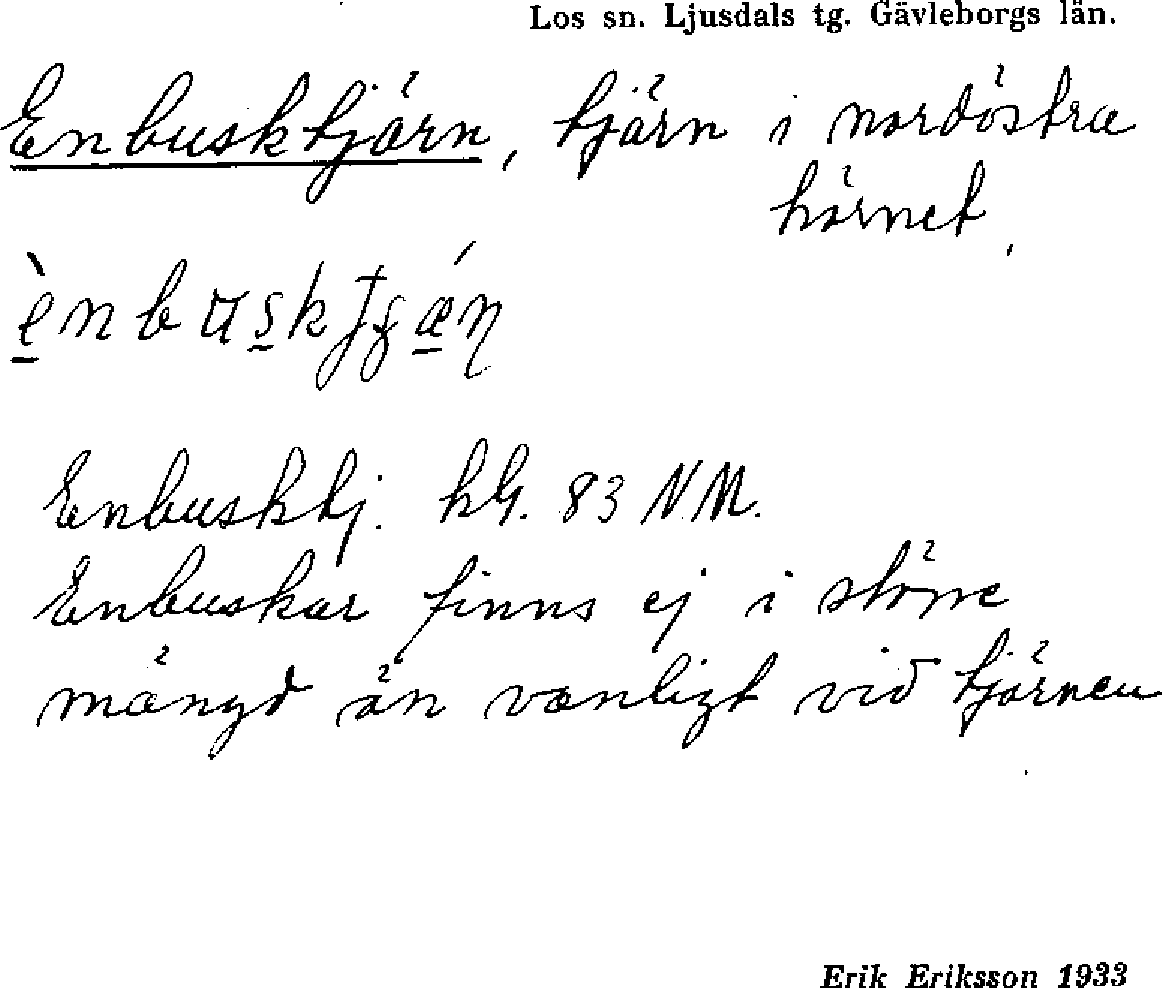 Los sn. Ljusdals tg. Gävleborgs län.
Enbusktjärn, tjärn i nordöstra
hörnet.
Enbusktj. 83 NM.
Enbuskar finns ej i större
mängd än vanligt vid tjärnen
Erik Eriksson 1933